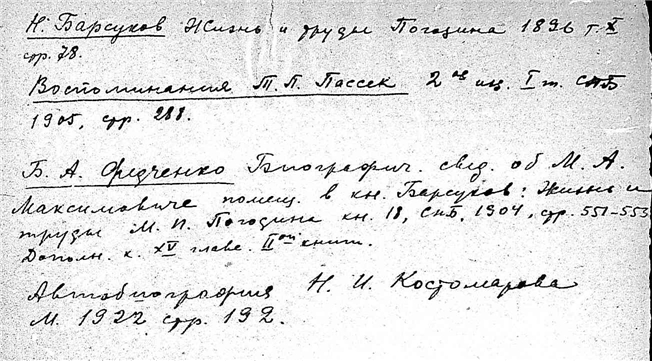 Н. Барсуков Жизнь и труды Погодина 1896 т. X
стр. 78.
Воспоминания Т. П. Пассек 2ое изд. I т. СПБ
1905, стр. 288.
Б. А. Федченко Биографич. свед. об М. А.
Максимовиче помещ. в кн. Барсуков: Жизнь и
труды М. П. Погодина кн. 18, СПБ, 1904, стр. 551-553
Дополн. к. XV главе. IIой книги.
Автобиография Н. И. Костомарова
М. 1922 стр. 192.